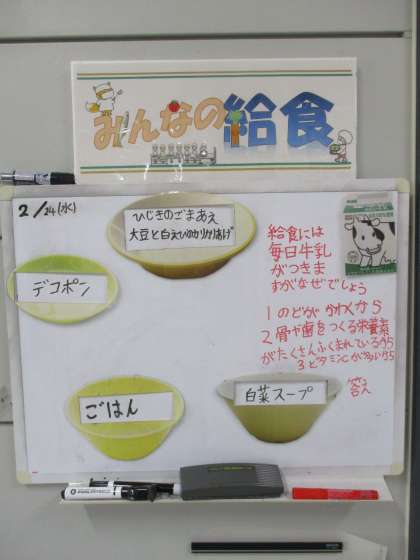 みんなの給食
2/24(水)
ひじきのごまあえ
大豆と白えびのかりかりあげ
デコポン
ごはん
白菜スープ
給食には
毎日牛乳
がつきま
すがなぜでしょう
1のどがかわくから
2骨や歯をつくる栄養素
がたくさんふくまれているから
3ビタミンCが多いから
答え